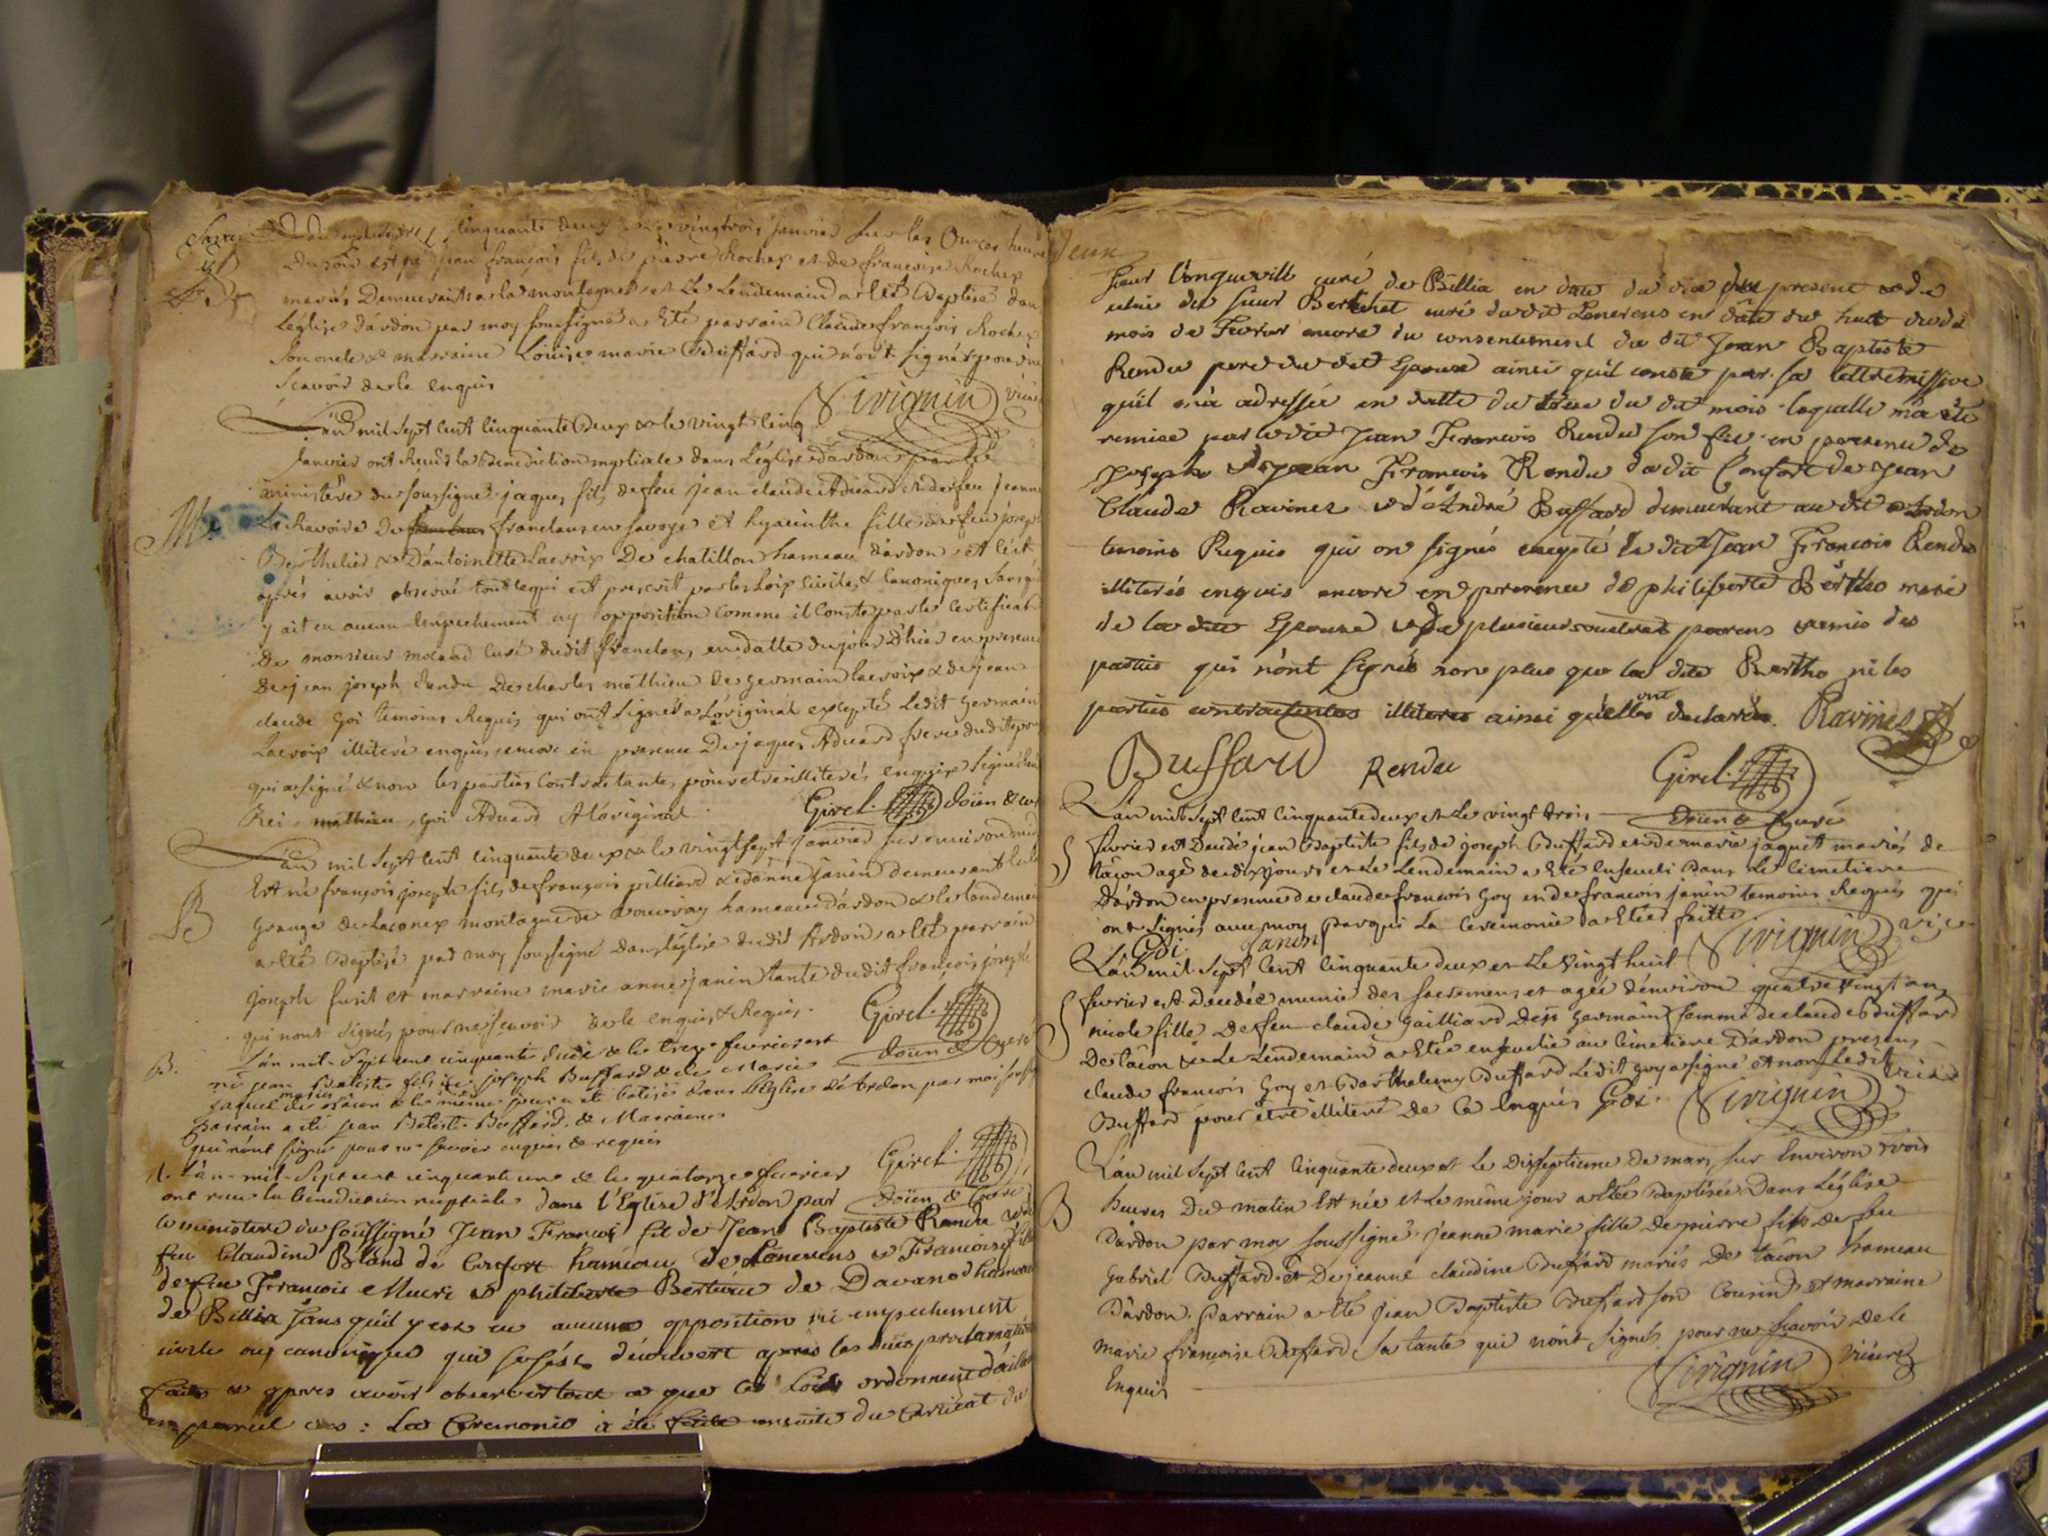 cinquante deux vingttrois janvier sur les Onces heures
Du soir est né jean françois fils de pierre Rochex et de francoise Rochex
mariés Demeurants a la montagne et Le Lendemain a été Baptisé dans
L'église d'ardon par moy soussigné a Eté parrain Claude françois Rochex
son oncle & marraine Louise marie Buffard qui n'ont signés pour ne
Scavoir de le enquis
Sirignin vicaire
L'an mil sept cent cinquante Deux & le vingt cinq
Janvier ont Reçus la Benediction nuptiale dans L'église d'ardon par le
ministère du soussigné jaques fils de feu jean claude Aduard et de feu jeanne
M.
Lachavoire De franclans en savoye et hyacinthe fille de feu joseph
Berthelier & D'antoinette Lacroix De chatillon hameau d'ardon et c'est
après avoir observé tout ce qui est prescrit par les Loix civiles & canoniques, sans qu'il
y ait eu aucun Empechement ny opposition comme il conste par le certificat
De monsieur curé dudit franclans en datte du jour d'hier en presence
De jean joseph Rendu De charles mathieu De germain Lacroix & de jean
claude goi temoins Requis qui ont signés a L'original excepté Ledit germain
Lacroix illiteré enquis encore en presence De jaques Aduard frere dudit
qui a signé & non les parties Contractantes pour etre illiterés enquis signé
mathieu, goi Aduard A l'original. Girel. doïen & curé
L'an mil sept cent cinquante deux & le vingt sept janvier sur environ midi
B
Est né françois joseph fils de françois pilliard & d'anne janin demeurant
Grange de Laconex montagne de hameau d'ardon & le lendemain
a été Baptisé par moy soussigné Dans L'église dudit Ardon a été parrain
joseph et marraine marie anne janin tante dudit françois joseph
qui n'ont signés pour ne scavoir de le enquis & Requis. Girel. doïen & Curé
B.
L'an mil sept cent cinquante deux & le treze fevrier est
né jean Batiste fils de joseph Buffard & de Marie
jaquet mariés de & le même jour a été batisé dans l'Eglise d'Ardon par moi
Parrain a été jean Batiste Buffard & Marraine
qui n'ont signé pour ne scavoir enquis & requis
Girel. doïen & Curé
L'an mil sept cent cinquante une & le quatorze fevrier
ont reçu la bénédiction nuptiale dans l'Eglise d'Ardon par
le ministere du soussigné Jean François fils de Jean Baptiste Rendu et de
feu Claudine Bland de Confort hameau de Lancrens & Francoise fille
de feu François & philiberte Bertho de Davanod hameau
de Billia sans qu'il y eut eu aucune opposition ni empechement
civile ou canonique qui se soit découvert après les proclamations
faites & apres avoir observé tout ce que les Loix ordonnent
en pareil cas : La Ceremonie a été faite ensuite du certificat du
sieur curé de Billia en date du present & de
celui du sieur curé dudit Lancrens en date du huit dudit
mois de Fevrier encore du consentement du dit Jean Baptiste
Rendu pere du dit Epoux ainsi qu'il conste par sa lettre missive
qu'il m'a adressée en datte du du dit mois laquelle m'a été
remise par le dit Jean Francois Rendu son fils en presence de
Joseph & Jean Francois Rendu du dit Confort de Jean
Claude Ravinez & d'André Buffard demeurant au dit Ardon
temoins Requis qui on signés excepté le dit Jean Francois Rendu
illiterés enquis encore en presence de philiberte Bertho mere
de la dite Epouse & de plusieurs autres parens & amis des
parties qui n'ont signés non plus que la dite Bertho ni les
parties contractantes illiteres ainsi qu'elles ont declarés. Ravinez
Buffard Rendu Girel.
doïen & Curé
L'an mil sept cent cinquante deux et Le vingt trois
S
fevrier est Decedé jean Baptiste fils de joseph Buffard et de marie jaquet mariés de
Lacon agé de dix jours et Le Lendemain a été Enseveli Dans Le Cimetiere
D'ardon en presence de claude françois Goy et de francois janin temoins Requis qui
ont signés avec moy par qui La Ceremonie a été faitte
Goi janin Sirignin vice
L'an mil sept cent cinquante deux et Le vingt huit
S
fevrier est Decedée munie des sacremens et agée d'environ quatre vingt ans
nicole fille De feu claude gailliard De germain femme de claude Buffard
De Lacon & Le Lendemain a été ensevelie au cimetiere D'ardon presens
claude francois Goy et Barthelemy Buffard Ledit goy a signé et non Ledit
Buffard pour être illiteré De Ce Enquis Goi. Sirignin
L'an mil sept cent cinquante deux et Le Dixseptieme De mars sur Environ trois
B
heures Du matin Est née et Le même jour a été Baptisée Dans L'église
D'ardon par moy soussigné jeanne marie fille De pierre fils de feu
Gabriel Buffard et De jeanne claudine Buffard mariés De Lacon hameau
D'ardon. Parrain a été jean Baptiste Buffard son Cousin et marraine
marie françoise Buffard sa tante qui n'ont signés pour ne scavoir de le
Enquis
Sirignin vicaire